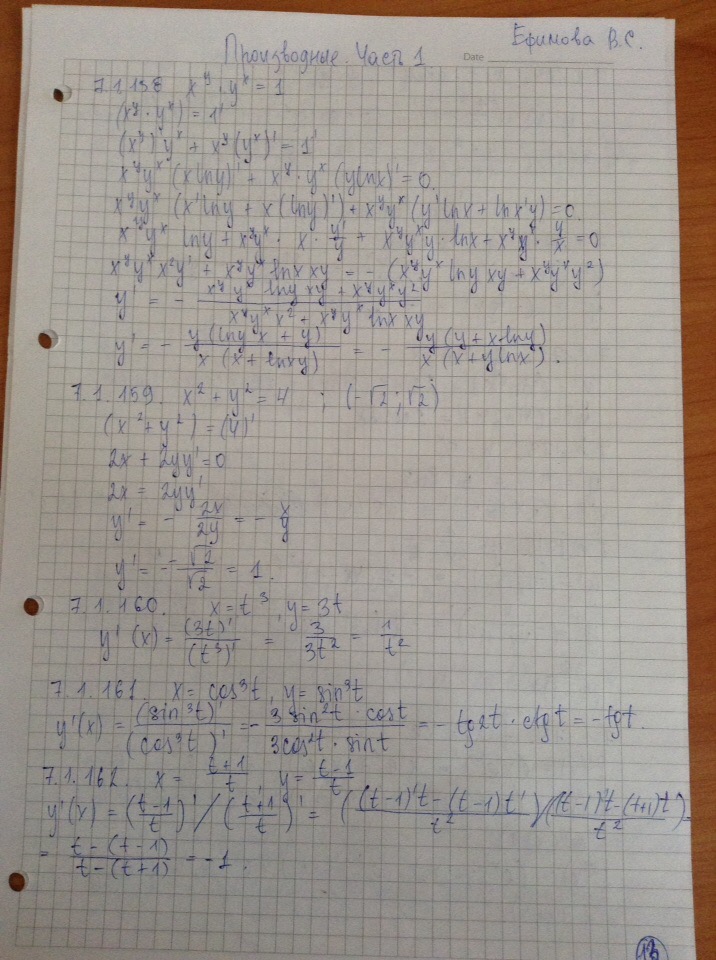 Ефимова В.С.
Производные. Часть 1
Date
7.1.158 x^y · y^x = 1
(x^y · y^x)' = 1'
(x^y)' y^x + x^y (y^x)' = 1'
x^y y^x (x ln y)' + x^y · y^x (y ln x)' = 0
x^y y^x (x' ln y + x (ln y)') + x^y y^x (y' ln x + ln x' y) = 0
x^y y^x ln y + x^y y^x · x · y'/y + x^y y^x y' · ln x + x^y y^x · y/x = 0
x^y y^x x^2 y' + x^y y^x ln x xy = - (x^y y^x ln y xy + x^y y^x y^2)
y' = - (x^y y^x ln y xy + x^y y^x y^2) / (x^y y^x x^2 + x^y y^x ln x xy)
y' = - y (ln y x + y) / x (x + ln x y) = - y (y + x ln y) / x (x + y ln x).
7.1.159. x^2 + y^2 = 4 ; (-√2; √2)
(x^2 + y^2) = (4)'
2x + 2yy' = 0
2x = 2yy'
y' = - 2x/2y = - x/y
y' = - -√2/√2 = 1.
7.1.160. x = t^3 y = 3t
y'(x) = (3t)'/(t^3)' = 3/3t^2 = 1/t^2
7.1.161. x = cos^3t, y = sin^3t
y'(x) = (sin^3t)'/(cos^3t)' = - 3 sin^2t · cost / 3cos^2t · sint = - tg2t · ctgt = -tgt.
7.1.162. x = t+1/t, y = t-1/t
y'(x) = (t-1/t)' / (t+1/t)' = ((t-1)'t - (t-1)t' / t^2) / ((t-1)'t - (t+1)t' / t^2) =
= t-(t-1) / t-(t+1) = -1.
13